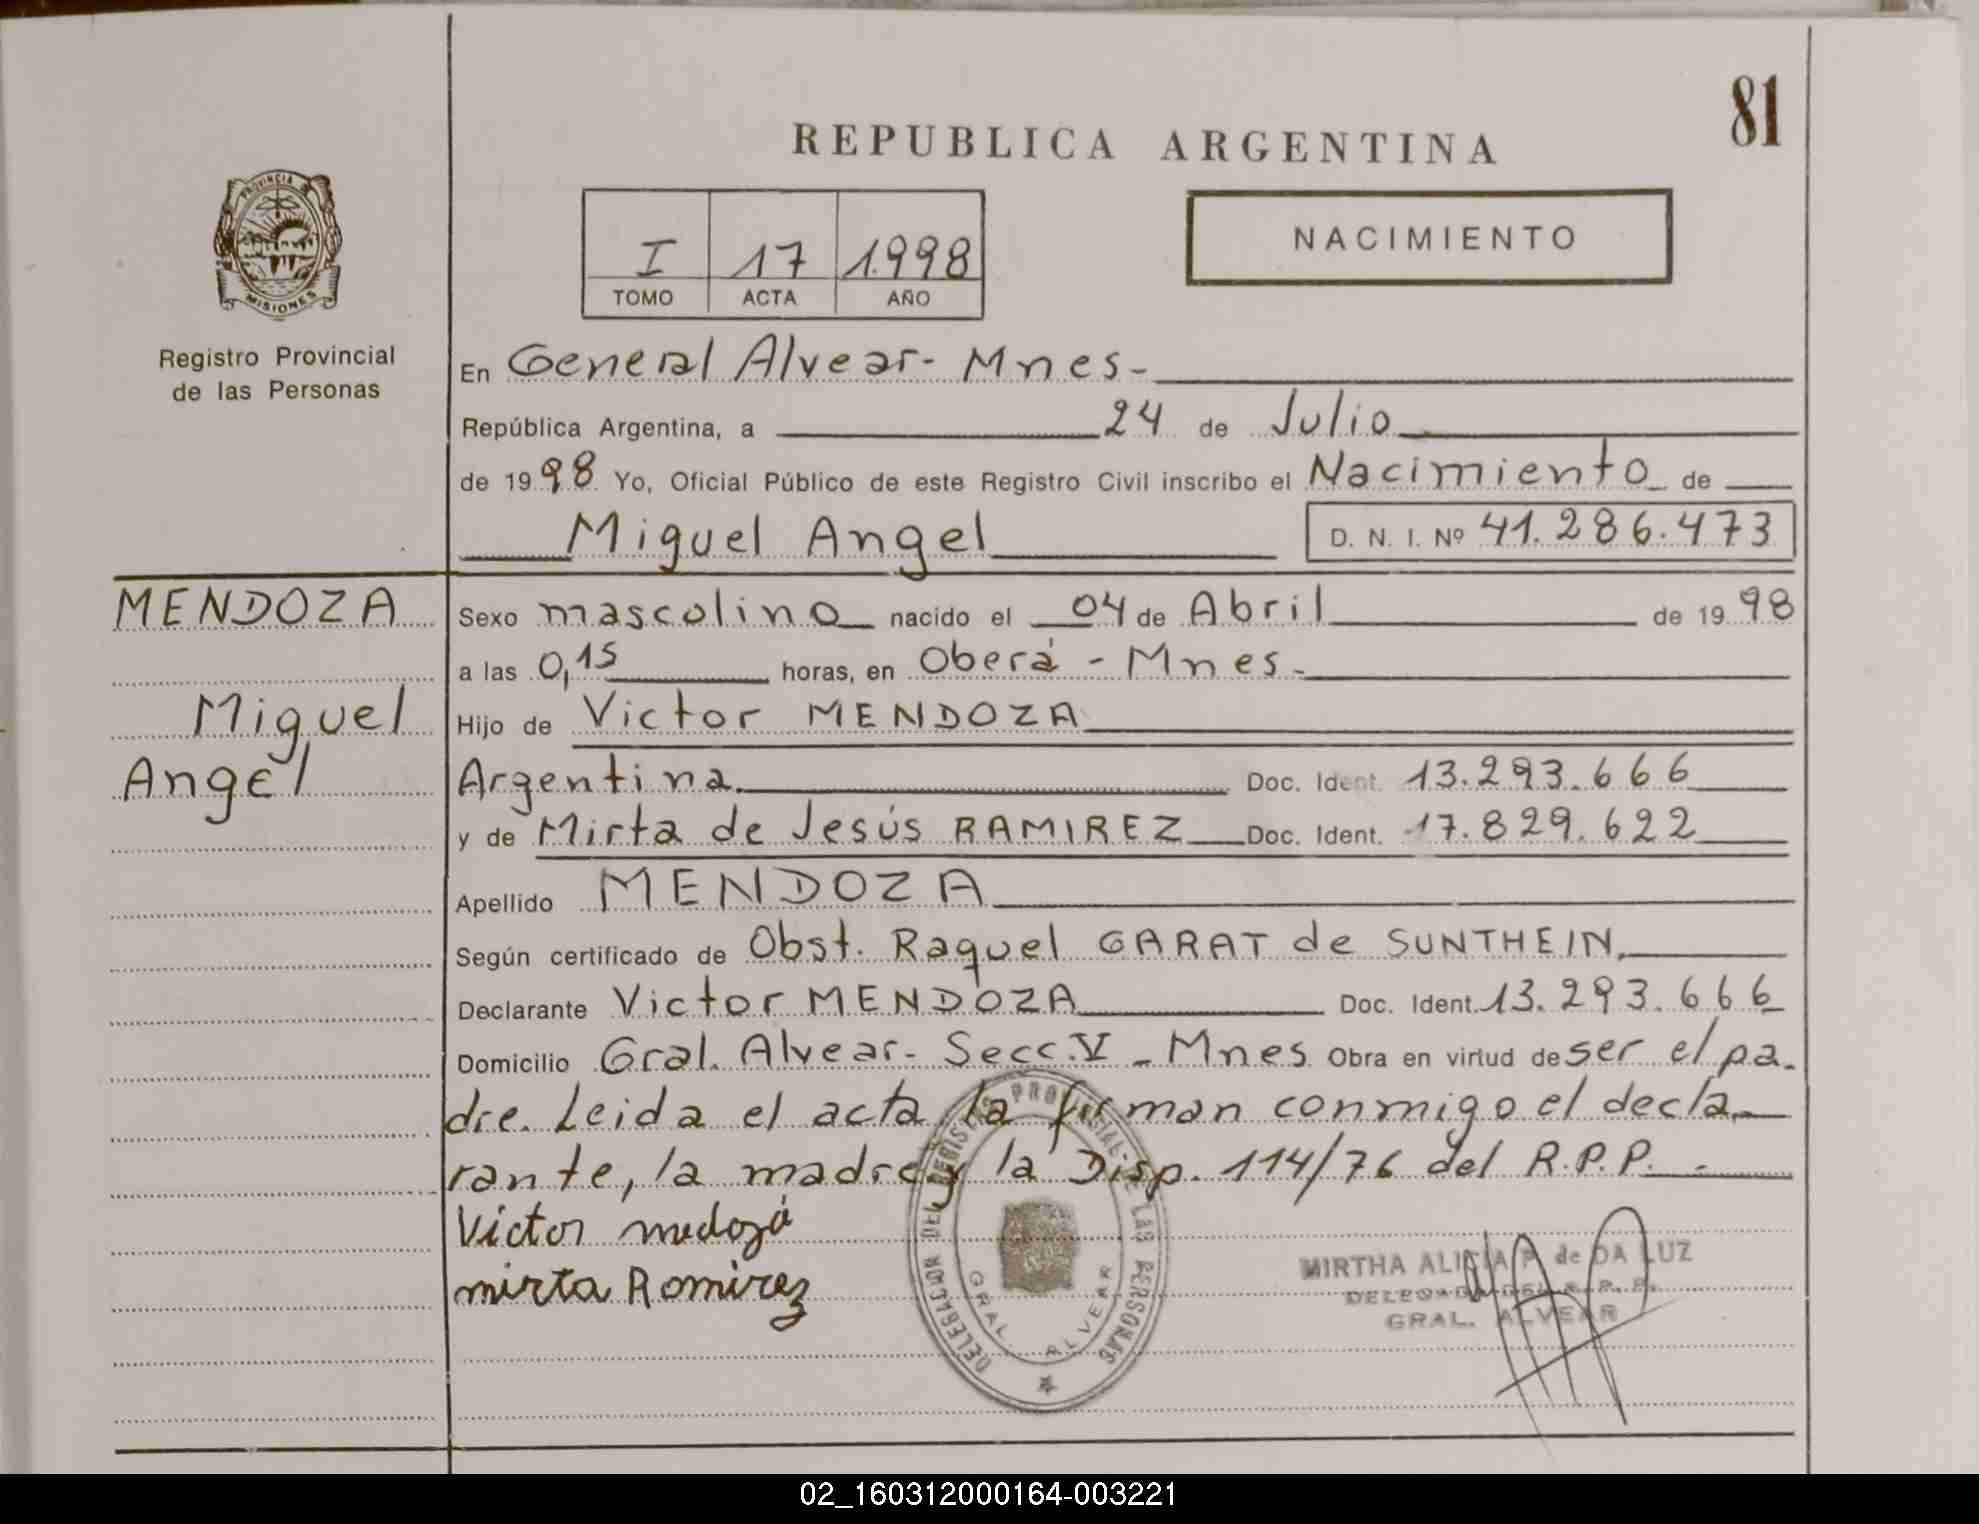 81
REPUBLICA ARGENTINA
PROVINCIA DE
MISIONES
Registro Provincial
de las Personas
I 17 1.998
TOMO ACTA AÑO
NACIMIENTO
En General Alvear- Mnes-
República Argentina, a 24 de Julio
de 19 98 Yo, Oficial Público de este Registro Civil inscribo el Nacimiento de
Miguel Angel D. N. I. Nº 41.286.473
MENDOZA
Miguel
Angel
Sexo mascolino nacido el 04 de Abril de 19 98
a las 0,15 horas, en Oberá - Mnes-
Hijo de Victor MENDOZA
Argentina. Doc. Ident. 13.293.666
y de Mirta de Jesús RAMIREZ Doc. Ident. 17.829.622
Apellido MENDOZA
Según certificado de Obst. Raquel GARAT de SUNTHEIN,
Declarante Victor MENDOZA Doc. Ident. 13.293.666
Domicilio Gral. Alvear- Secc. V - Mnes Obra en virtud de ser el pa-
dre. Leida el acta la firman conmigo el decla-
rante, la madre y la Disp. 114/76 del R.P.P. -
Victor medoza
mirta Romirez
DELEGACION DEL REGISTRO PROVINCIAL DE LAS PERSONAS
GRAL. ALVEAR
MIRTHA ALICIA P. de DA LUZ
DELEGADA DEL R. P. P.
GRAL. ALVEAR
02_160312000164-003221